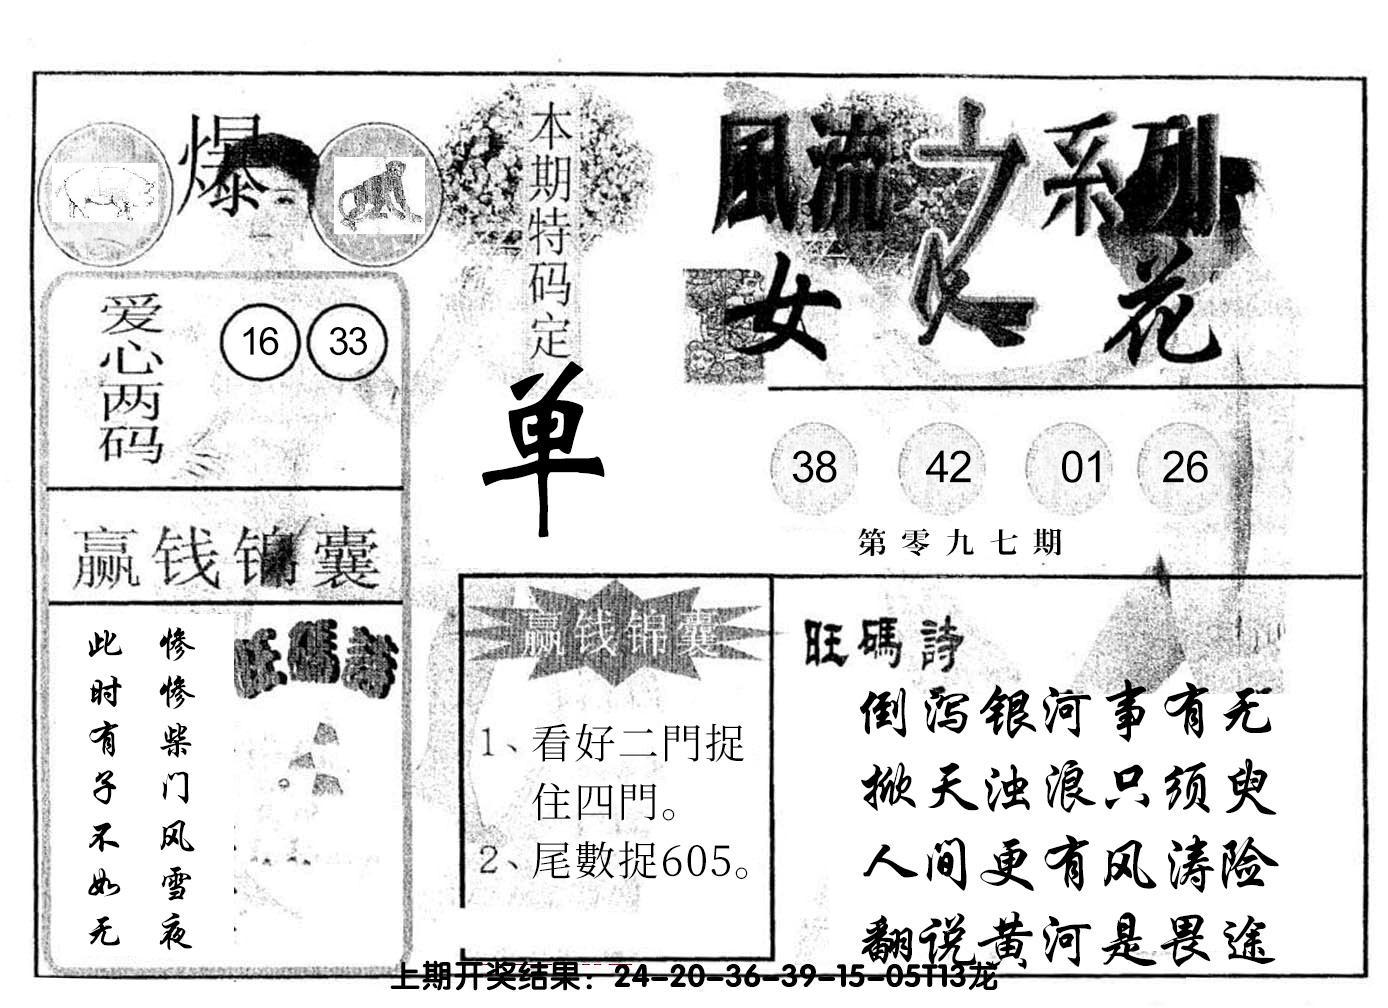 爆
本期特码定
单
風流之系列
女人花
爱心两码
16 33
38 42 01 26
第零九七期
赢钱锦囊
惨惨柴门风雪夜
此时有子不如无
旺碼詩
赢钱锦囊
1、看好二門捉
住四門。
2、尾數捉605。
旺碼詩
倒泻银河事有无
掀天浊浪只须臾
人间更有风涛险
翻说黄河是畏途
上期开奖结果：24-20-36-39-15-05T13龙